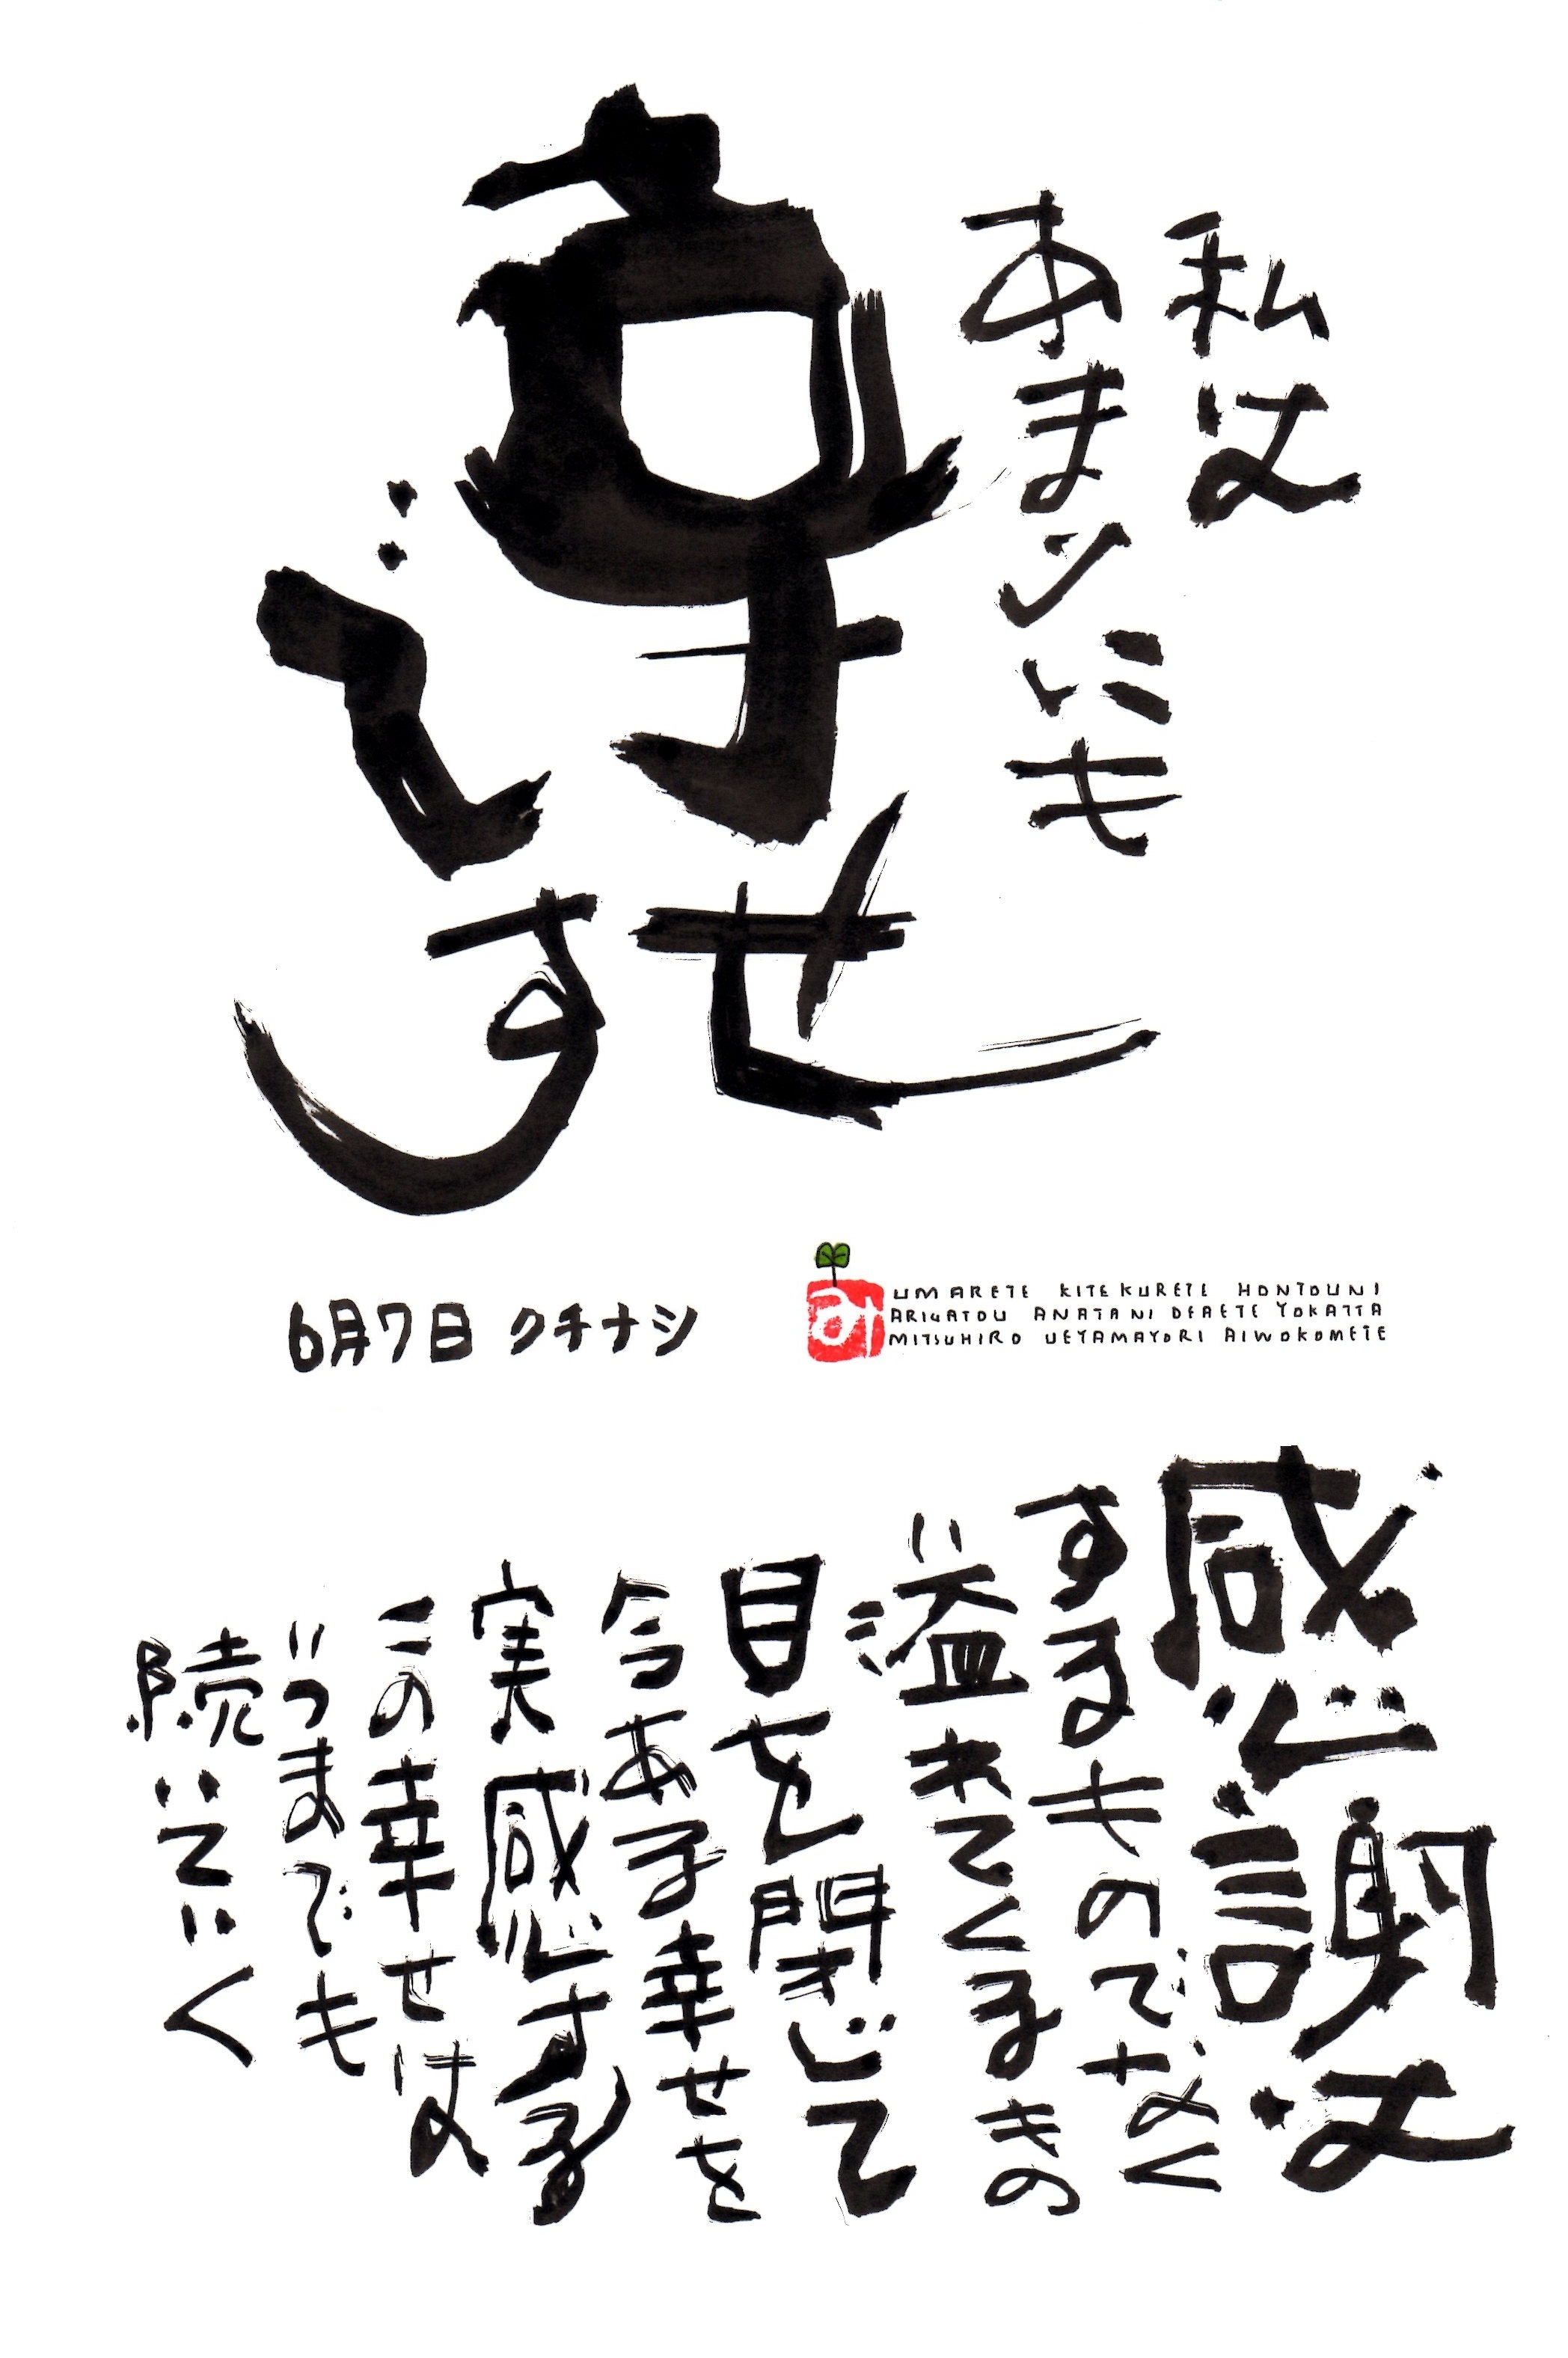 私は
あまりにも
幸せ
です
6月7日 クチナシ
UMARETE KITEKURETE HONTOUNI
ARIGATOU ANATANI DEAETE YOKATTA
MITSUHIRO UEYAMAYORI AIWOKOMETE
感謝は
するものでなく
溢れてくるもの
目を閉じて
今ある幸せを
実感する
この幸せは
いつまでも
続いていく